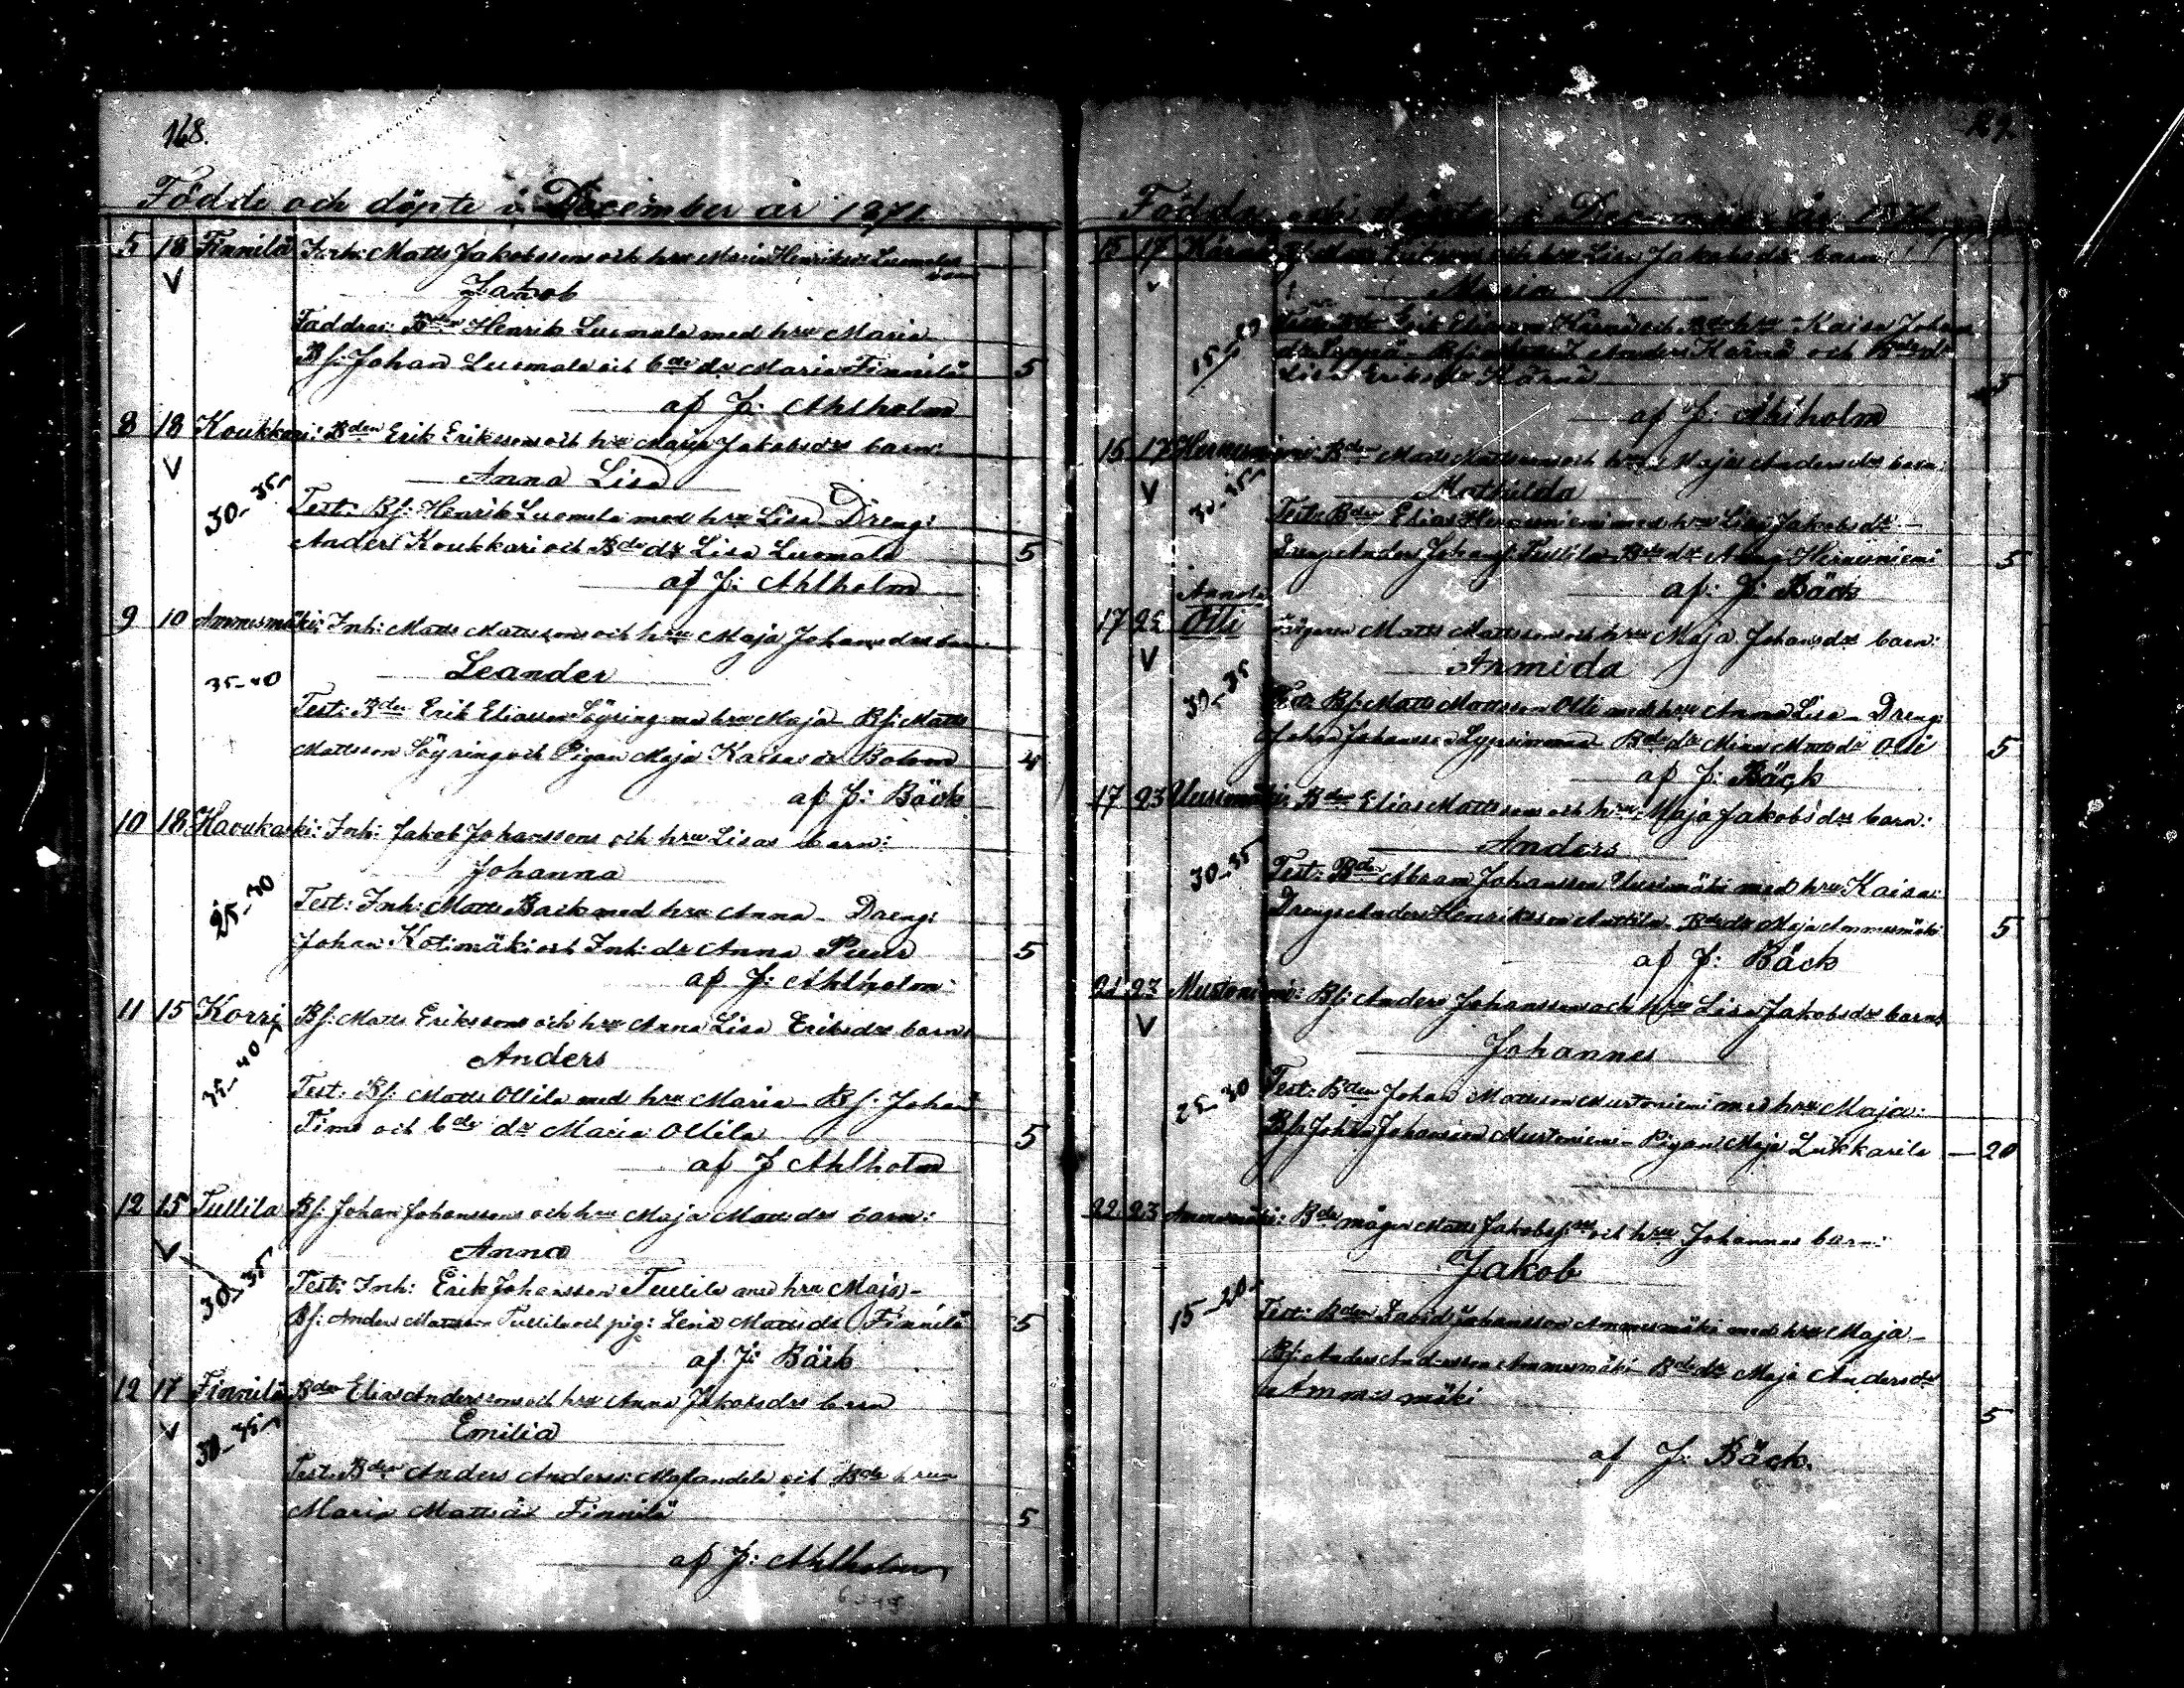 168.
Födde och döpte i December år 1871.
5 18 Finnilä Inh: Matts Jakobssons och hru Maria Henriksdr Luomalas barn
V Jakob
Faddrar: Bden Henrik Luomala med hru Maria
Bs: Johan Luomala och bde dr Maria Finnilä 5
af P: Ahlholm
8 18 Koukkari: Bden Erik Erikssons och hru Maria Jakobsdrs barn:
V Anna Lisa
30-35 Test: Bs: Henrik Luomala med hru Lisa Dreng:
Anders Koukkari och Bde dr Lisa Luomala 5
af P: Ahlholm
9 10 Ammesmäki: Inh: Matts Mattssons och hru Maja Johansdrs barn
Leander
35-40
Test: Bden Erik Eliasson Söyring med hru Maja Bs: Matts
Mattsson Söyring och Pigan Maja Kaisa dr Bolom 4
af P: Bäck
10 18 Havukoski: Inh: Jakob Johanssons och hru Lisas barn:
Johanna
25-30 Test: Inh: Matts Back med hru Anna Dreng:
Johan Kotimäki och Inh: dr Anna Puur 5
af P: Ahlholm
11 15 Korri Bs: Matts Erikssons och hru Anna Lisa Eriksdrs barn
Anders
35-40 Test: Bs: Matts Ollila med hru Maria Bs: Johan
Timo och bde dr Maria Ollila 5
af P Ahlholm
12 15 Tullila Bs: Johan Johanssons och hru Maja Mattsdrs barn:
V Anna
30-35 Test: Inh: Erik Johansson Tullila med hru Maja-
Bs: Anders Mattsson Tullila och pig: Lena Mattsdr Finnilä 5
af P: Bäck
12 17 Finnilä Bden Elias Anderssons och hru Anna Jakobsdrs barn
V Emilia
30-35 Test: Bden Anders Anderss: och Bde hru
Maria Mattsdr Finnilä 5
af P: Ahlholm
Födda och döpta i år 1871
15 17 Bs: och hru Lisa Jakobsdrs barn
Maria
Test: Bden Erik Eliasson Kärnä och Bde hru Kaisa Johans
dr Bs: Anders Kärnä och Bde dr
Lisa Eriksdr Kärnä 5
af P: Ahlholm
15 17 Herneniemi: Bden Matts Mattssons och hru Maja Andersdrs barn:
V Mathilda
30-35 Test: Bden Elias Herneniemi med hru Lisa Jakobsdr
Dreng Anders Johanss: Tullila Bde dr Herneniemi 5
af: P: Bäck
Annola
17 22 Olli Matts Mattssons och hru Maja Johansdrs barn:
V Armida
30-35 Test: Bs: Matts Mattsson Olli med hru Anna Lisa Dreng:
Johan Johansson Bde dr Mina Mattsdr Olli 5
af P: Bäck
17 23 Uusimäki: Bden Elias Mattssons och hru Maja Jakobsdrs barn:
Anders
30-35 Test: Bden Abram Johansson Uusimäki med hru Kaisa:
Dreng: Anders Henriksson Anttila Bde dr Maja Ammesmäki 5
af P: Bäck
21 27 Mustoniemi: Bs: Anders Johanssons och hru Lisa Jakobsdrs barn:
V Johannes
25-30 Test: Bden Johan Mattsson Mustoniemi med hru Maja:
Bs: Johan Johansson Mustoniemi Pigan Maja Lukkarila 20
22 23 Ammesmäki: Bde mågen Matts Jakobss:ns och hru Johannas barn:
Jakob
15-20 Test: Bden David Johansson Ammesmäki med hru Maja
Bs: Anders Andersson Ammesmäki Bde dr Maja Andersdr
Ammesmäki 5
af P: Bäck.